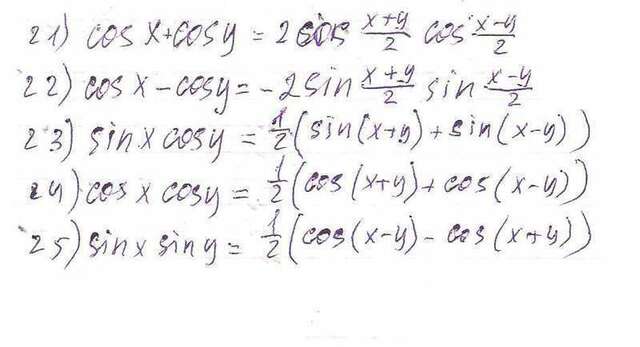 21) cos x+cosy = 2cos x+y/2 cos x-y/2
22) cos x-cosy=-2sin x+y/2 sin x-y/2
23) sinx cosy = 1/2(sin(x+y)+sin(x-y))
24) cos x cosy = 1/2(cos(x+y)+cos(x-y))
25) sinx siny = 1/2(cos(x-y)-cos(x+y))